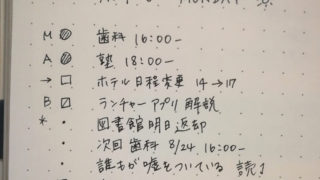 M 歯科 16:00-
A 塾 18:00-
→ ホテル日程変更 14→17
B ランチャーアプリ解説
* ・図書館明日返却
・次回歯科 8/24 16:00-
・誰もが嘘をついている 読了